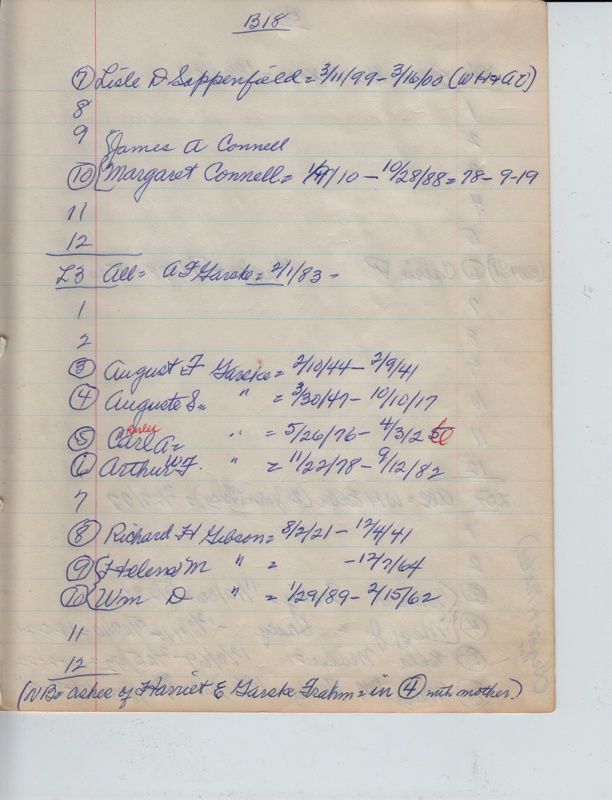 B18
⑦ Lisle D Sappenfield = 3/11/99 - 3/16/00 (WH+
8
9 James A Connell
⑩ Margaret Connell = /10 - 10/28/88 = 78-9-19
11
12
L3 All = A F Garske = 2/1/83 =
1
2
③ August F Garske = 2/10/44 - 2/9/41
④ Auguste S. " = 3/30/47 - 10/10/17
⑤ Carl A = " = 5/26/76 - 4/3/2
⑥ Arthur W F. " = 11/22/78 - 9/12/82
7
⑧ Richard H Gibson = 8/2/21 - 12/4/41
⑨ Helena M " = - 12/7/64
⑩ Wm D " = 1/29/89 - 2/15/62
11
12
(NB = ashes of Harriet E Garske Frahm = in ④ with mother)